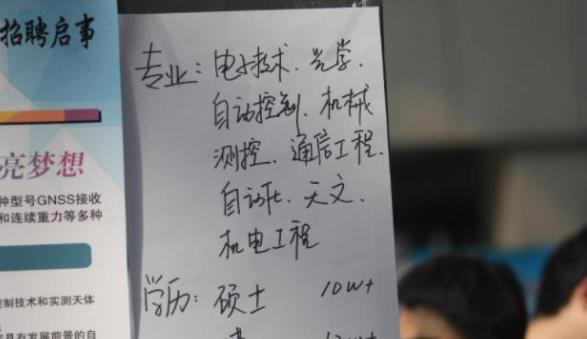 招聘启事
亮梦想
种型号GNSS接收
和连续重力等多种
控制技术和实测天体
具有发展前景的自
专业：电子技术、光学、
自动控制、机械
测控、通信工程、
自动化、天文、
机电工程
学历：硕士 10W+